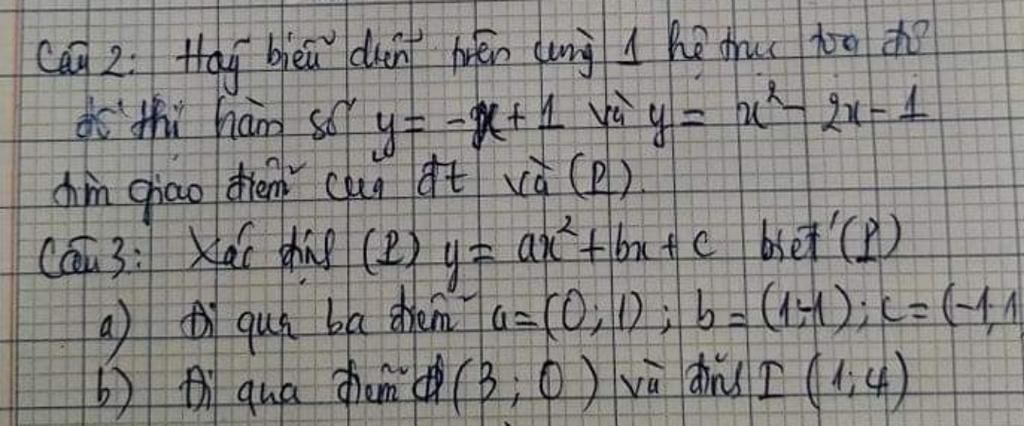 Câu 2: Hãy biểu diễn trên cùng 1 hệ trục toạ độ
đồ thị hàm số y = -x + 1 và y = x² - 2x - 1
tìm giao điểm của đt và (P).
Câu 3: Xác định (P) y = ax² + bx + c biết (P)
a) Đi qua ba điểm a = (0; 1); b = (1; -1); c = (-1, 1
b) Đi qua điểm (3; 0) và đỉnh I (1; 4)